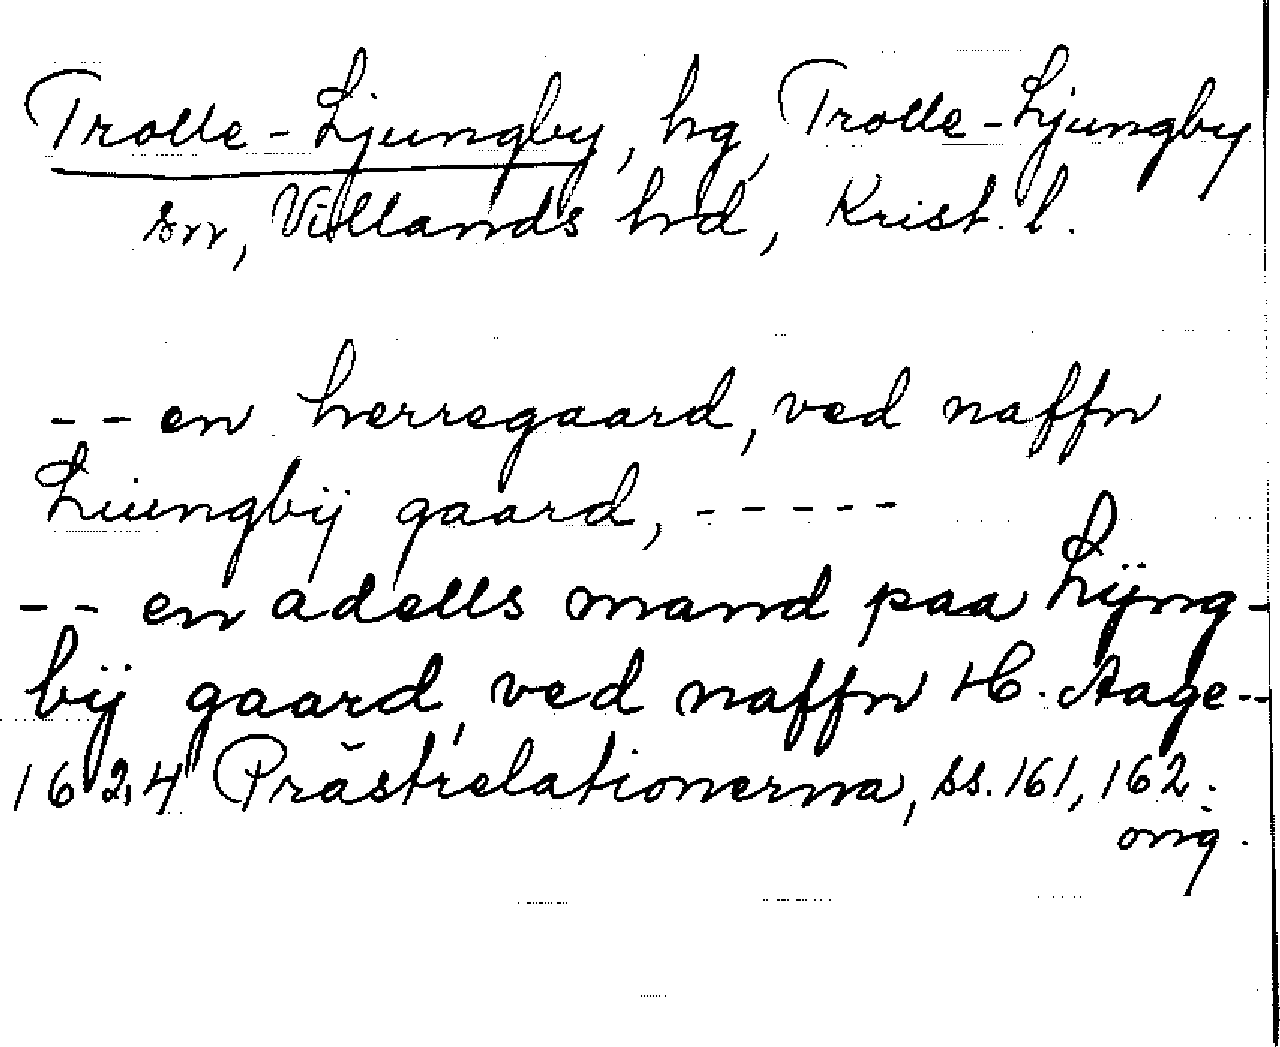 Trolle-Ljungby, hg, Trolle-Ljungby
sn, Villands hd, Krist. l.
-- en herregaard, ved naffn
Liungbÿ gaard, -----
-- en adells mand paa Lÿng-
bÿ gaard, ved naffn H. Aage--
1624 Prästrelationerna, ss. 161, 162.
orig.